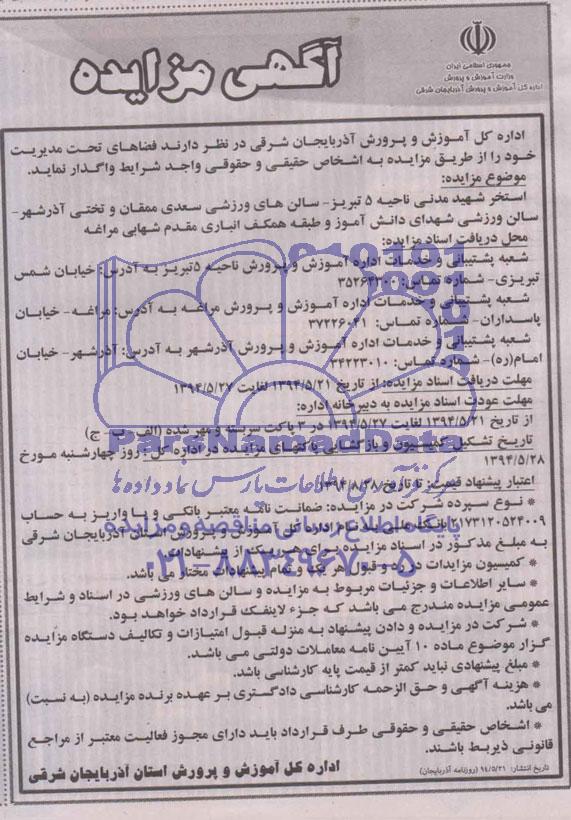 جمهوری اسلامی ایران
وزارت آموزش و پرورش
اداره کل آموزش و پرورش آذربایجان شرقی
آگهی مزایده
اداره کل آموزش و پرورش آذربایجان شرقی در نظر دارند فضاهای تحت مدیریت
خود را از طریق مزایده به اشخاص حقیقی و حقوقی واجد شرایط واگذار نماید.
موضوع مزایده:
استخر شهید مدنی ناحیه ۵ تبریز- سالن های ورزشی سعدی ممقان و تختی آذرشهر-
سالن ورزشی شهدای دانش آموز و طبقه همکف انباری مقدم شهابی مراغه
محل دریافت اسناد مزایده:
شعبه پشتیبانی و خدمات اداره آموزش و پرورش ناحیه ۵تبریز به آدرس: خیابان شمس
تبریزی- شماره تماس: ۳۵۲۶۴۳۰۰
شعبه پشتیبانی و خدمات اداره آموزش و پرورش مراغه به آدرس: مراغه- خیابان
پاسداران- شماره تماس: ۳۷۲۲۶۰۴۱
شعبه پشتیبانی و خدمات اداره آموزش و پرورش آذرشهر به آدرس: آذرشهر- خیابان
امام(ره)- شماره تماس: ۳۴۲۲۳۰۱۰
مهلت دریافت اسناد مزایده: از تاریخ ۱۳۹۴/۵/۲۱ لغایت ۱۳۹۴/۵/۲۷
مهلت عودت اسناد مزایده به دبیرخانه اداره:
از تاریخ ۱۳۹۴/۵/۲۱ لغایت ۱۳۹۴/۵/۲۷ در ۳ پاکت سربسته و مهر شده (الف- ب- ج)
ParsNamadData
تاریخ تشکیل کمیسیون و بازگشایی پاکتهای مزایده در اداره کل: روز چهارشنبه مورخ
۱۳۹۴/۵/۲۸
مرکز فرآوری اطلاعات پارس نماد داده ها
اعتبار پیشنهاد قیمت: تا تاریخ ۱۳۹۴/۸/۲۸
* نوع سپرده شرکت در مزایده: ضمانت نامه معتبر بانکی و یا واریز به حساب
پایگاه اطلاع رسانی مناقصه و مزایده
۲۱۷۳۱۲۰۵۲۴۰۰۹ بانک ملی به نام اداره کل آموزش و پرورش استان آذربایجان شرقی
به مبلغ مذکور در اسناد مزایده برای هر یک از پیشنهادات
۰۲۱-۸۸۳۴۹۶۷۰-۵
* کمیسیون مزایدات در رد و قبول هر یک و تمام پیشنهادات مختار می باشد.
* سایر اطلاعات و جزئیات مربوط به مزایده و سالن های ورزشی در اسناد و شرایط
عمومی مزایده مندرج می باشد که جزء لاینفک قرارداد خواهد بود.
* شرکت در مزایده و دادن پیشنهاد به منزله قبول امتیازات و تکالیف دستگاه مزایده
گزار موضوع ماده ۱۰ آیین نامه معاملات دولتی می باشد.
* مبلغ پیشنهادی نباید کمتر از قیمت پایه کارشناسی باشد.
* هزینه آگهی و حق الزحمه کارشناسی دادگستری بر عهده برنده مزایده (به نسبت)
می باشد.
* اشخاص حقیقی و حقوقی طرف قرارداد باید دارای مجوز فعالیت معتبر از مراجع
قانونی ذیربط باشند.
اداره کل آموزش و پرورش استان آذربایجان شرقی
تاریخ انتشار: ۹۴/۵/۲۱ (روزنامه آذربایجان)